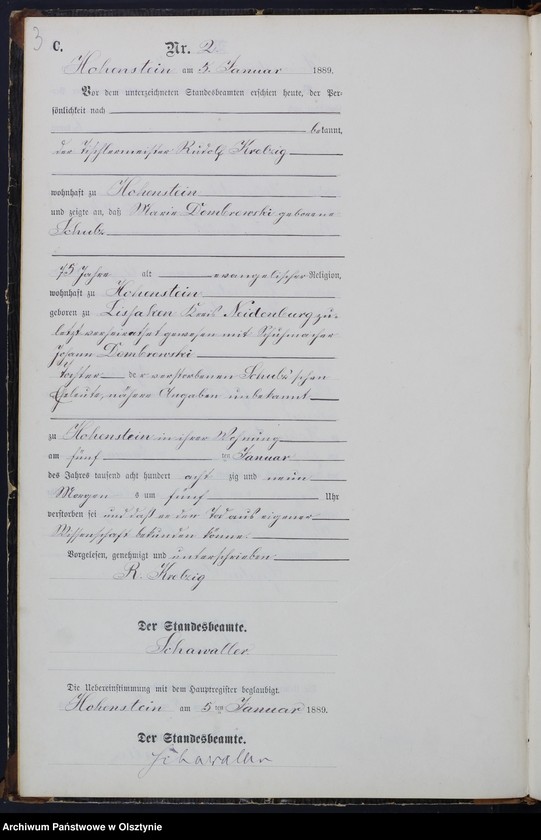 3
C.
Nr. 2
Hohenstein am 5. Januar 1889.
Vor dem unterzeichneten Standesbeamten erschien heute, der Per-
sönlichkeit nach
bekannt,
der Tischlermeister Rudolf Krebzig
wohnhaft zu Hohenstein
und zeigte an, daß Marie Dombrowski geborene
Schulz
75 Jahre alt evangelischer Religion,
wohnhaft zu Hohenstein
geboren zu Lissaken Kreis Neidenburg zu-
letzt verheirathet gewesen mit Schuhmacher
Johann Dombrowski
Tochter der verstorbenen Schulz'schen
Eheleute, nähere Angaben unbekannt
zu Hohenstein in ihrer Wohnung
am fünf ten Januar
des Jahres tausend acht hundert acht zig und neun
Morgen s um fünf Uhr
verstorben sei und daß er den Tod aus eigener
Wissenschaft bekunden könne.
Vorgelesen, genehmigt und unterschrieben
R. Krebzig
Der Standesbeamte.
Schawaller
Die Uebereinstimmung mit dem Hauptregister beglaubigt.
Hohenstein am 5 ten Januar 1889.
Der Standesbeamte.
Schawaller
Archiwum Państwowe w Olsztynie